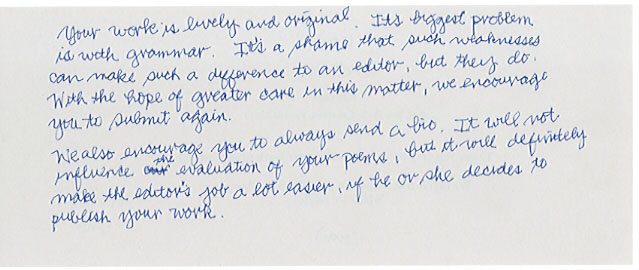 Your work is lively and original. Its biggest problem
is with grammar. It's a shame that such weaknesses
can make such a difference to an editor, but they do.
With the hope of greater care in this matter, we encourage
you to submit again.
We also encourage you to always send a bio. It will not
influence the evaluation of your poems, but it will definitely
make the editor's job a lot easier, if he or she decides to
publish your work.